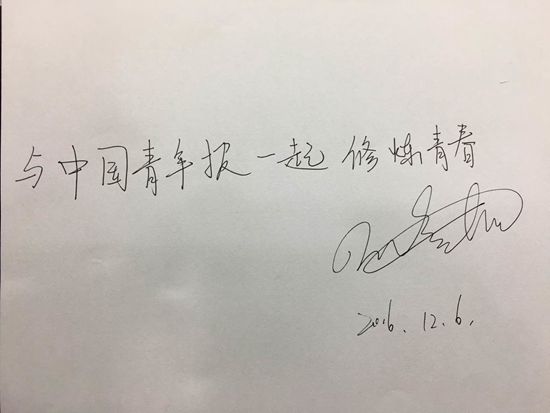 与中国青年报一起 修炼青春
2016.12.6.